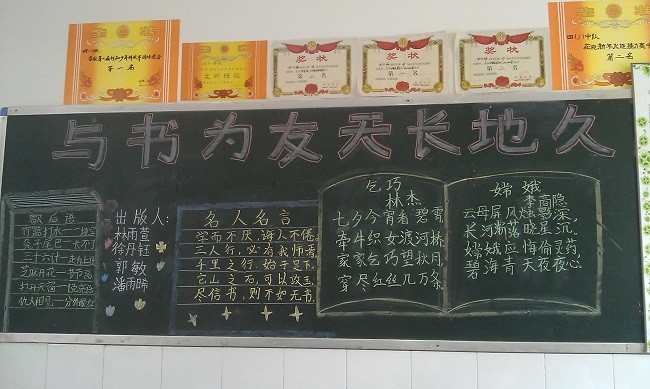 第一名
奖状
奖状
奖状
第二名
与书为友天长地久
歇后语
竹篮打水一场空
兔子尾巴—长不了
三十六计—走为上
芝麻开花—节节高
仇人相见—分外眼红
出版人:
林雨萱
徐丹钰
郭敏
潘雨晞
名人名言
学而不厌,诲人不倦。
三人行,必有我师焉
千里之行,始于足下
它山之石,可以攻玉
尽信书,则不如无书
乞巧
林杰
七夕今宵看碧霄
牵牛织女渡河桥
家家乞巧望秋月
穿尽红丝几万条
嫦娥
李商隐
云母屏风烛影深,
长河渐落晓星沉。
嫦娥应悔偷灵药,
碧海青天夜夜心。